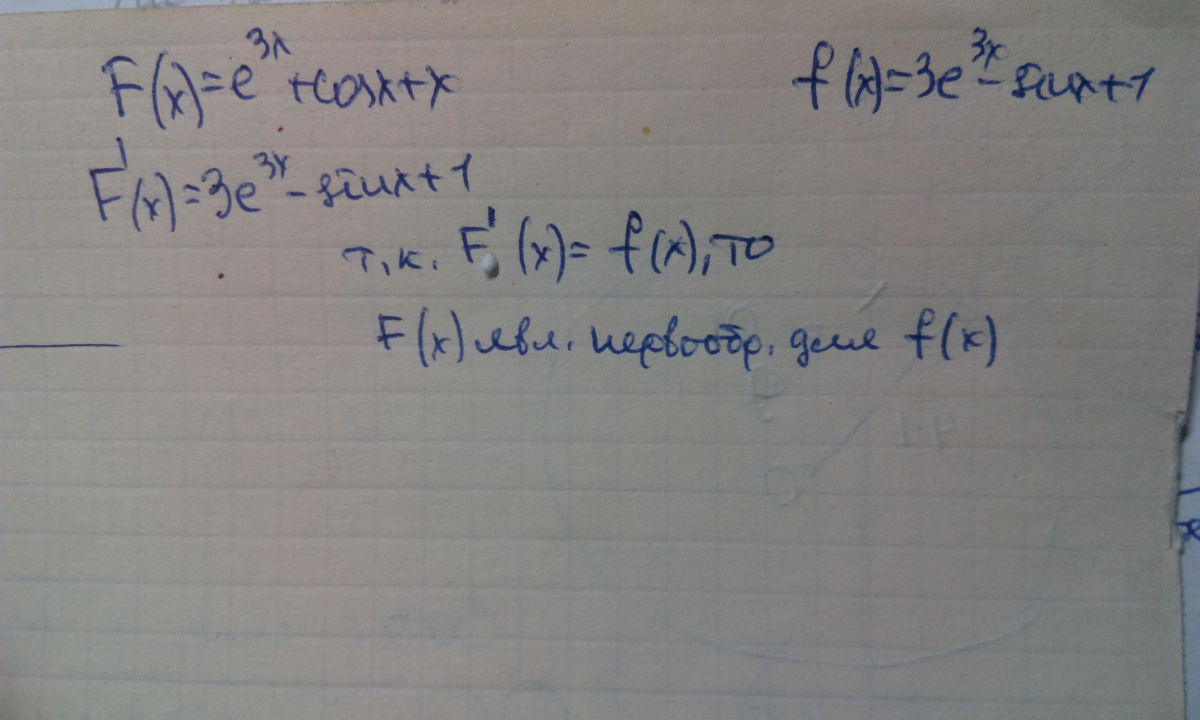 F(x)=e^{3x}+cosx+x
f(x)=3e^{3x}-sinx+1
F'(x)=3e^{3x}-sinx+1
т.к. F'(x)=f(x), то
F(x) явл. первообр. для f(x)